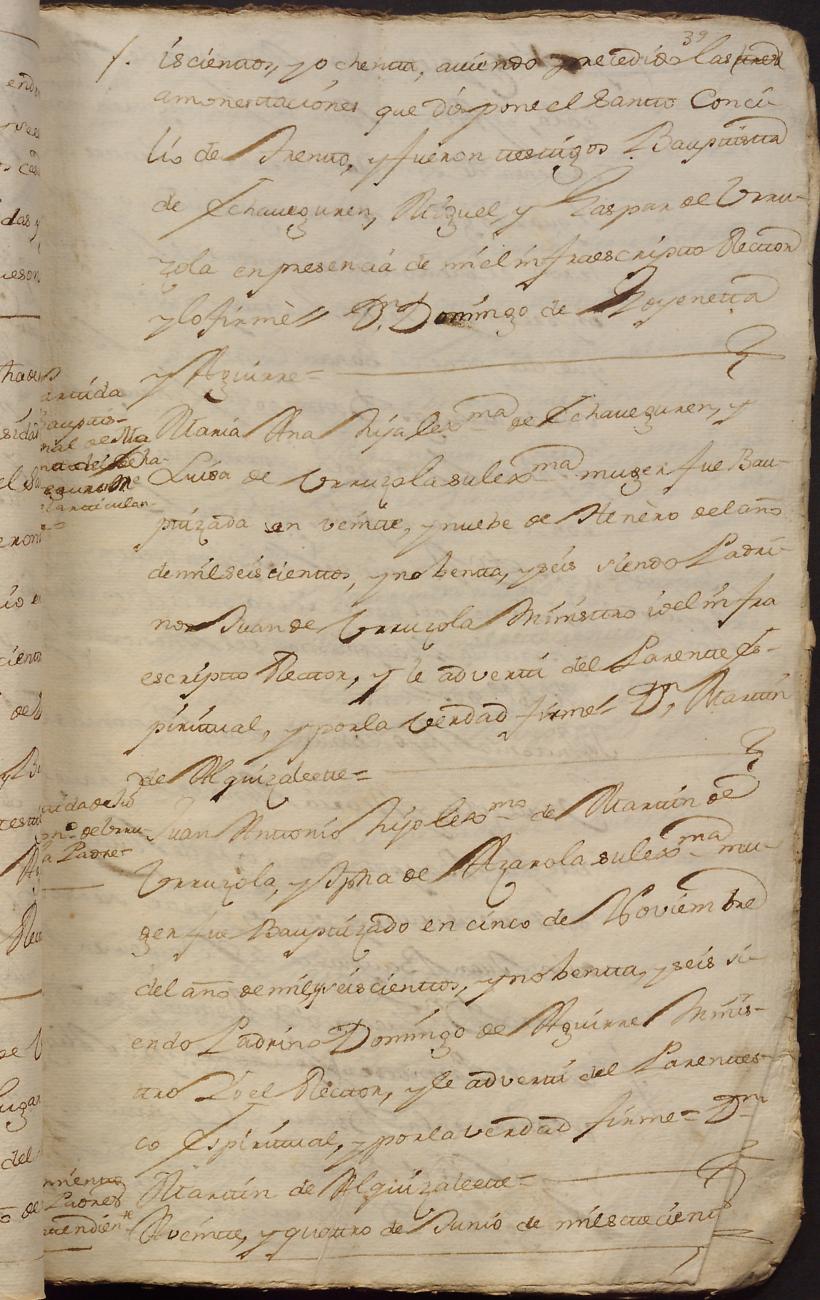 39
iscienttos, y ochentta, auiendo precedido las tres
amonesttaciones que dispone el Santto Conci-
lio de Trentto, y fueron testtigos Bauptistta
de Echaueguren, Miguel, y Gaspar de Urru-
zola en presencia de mi el infraescriptto Recttor
y lo firmè D.n Domingo de Goyenetta
y Aguirre=
Maria Ana hija lex.ma de Echaueguren, y
Luisa de Urruzola su lex.ma muger fue Bau-
ptizada en veintte, y nuebe de Henèro del año
de mil seiscienttos, y nobentta, y seis siendo Padri-
nos Juan de Urruzola Ministtro io el infra
escriptto Recttor, y le advertti del Parentte Es-
piritual, y por la Verdad firme D.n Marttin
de Alquizalette=
Juan Anttonio hijo lex.mo de Marttin de
Urruzola, y Jpha de Azarola su lex.ma mu-
ger fue Bauptizado en cinco de Noviembre
del año de mil y seiscienttos, y nobentta, y seis si-
endo Padrino Domingo de Aguirre Minis-
ttro Yo el Recttor, y le advertti del Parenttes-
co Espirittual, y por la verdad firme= D.n
Marttin de Alquizalette=
A veintte, y quattro de Junio de mil settecientt
Parttida
Bauptis-
mal de Ma
na de Echa-
eguren
artticulan-
tte
de Urru-
a Padre=
mientto
Padres